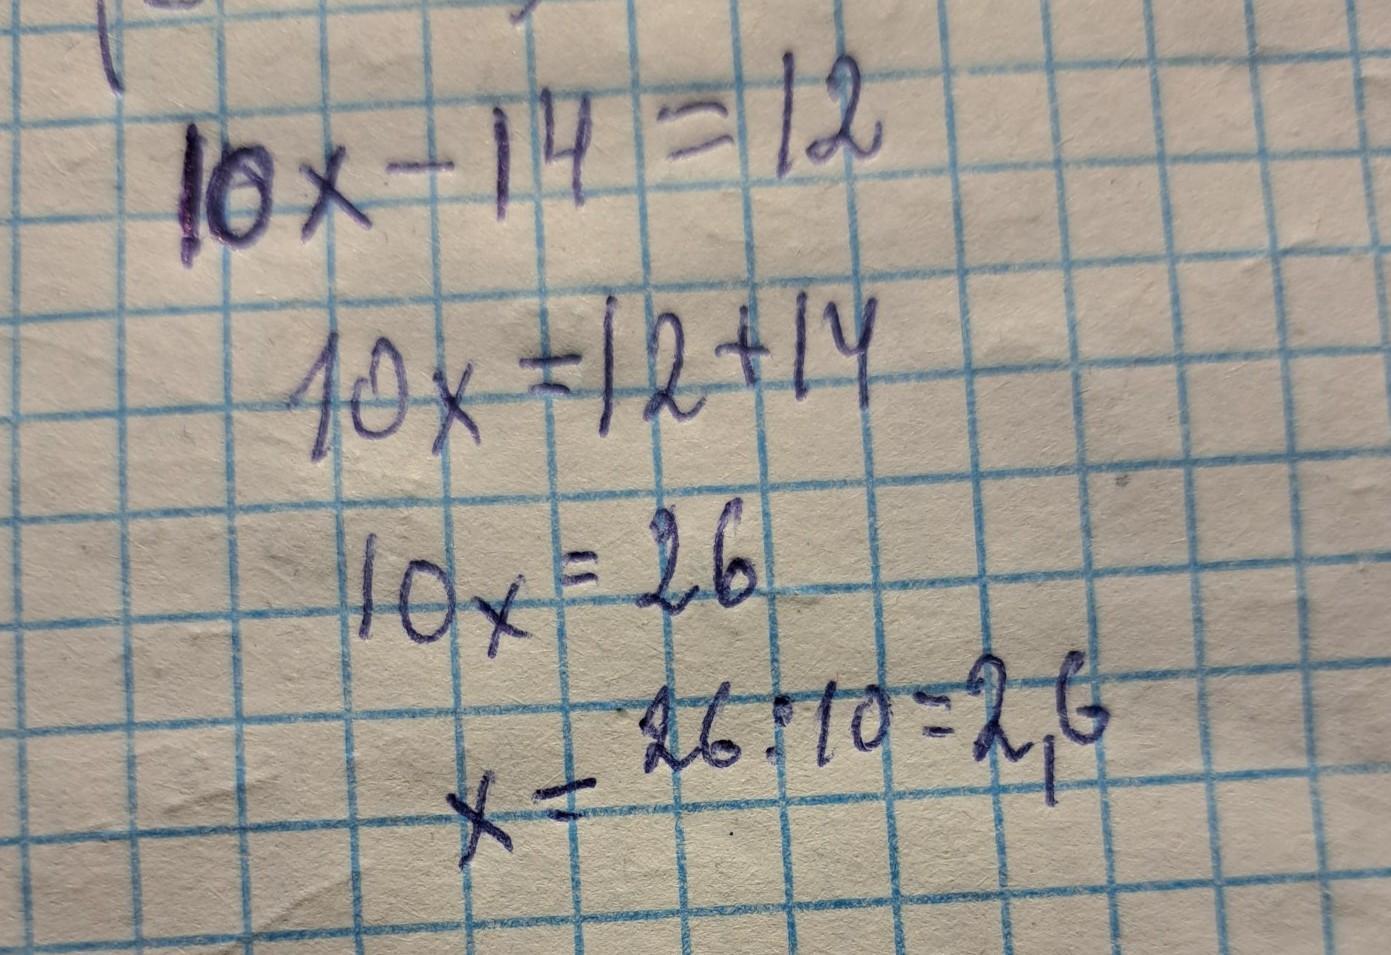 10x - 14 = 12
10x = 12 + 14
10x = 26
x = 26 : 10 = 2,6